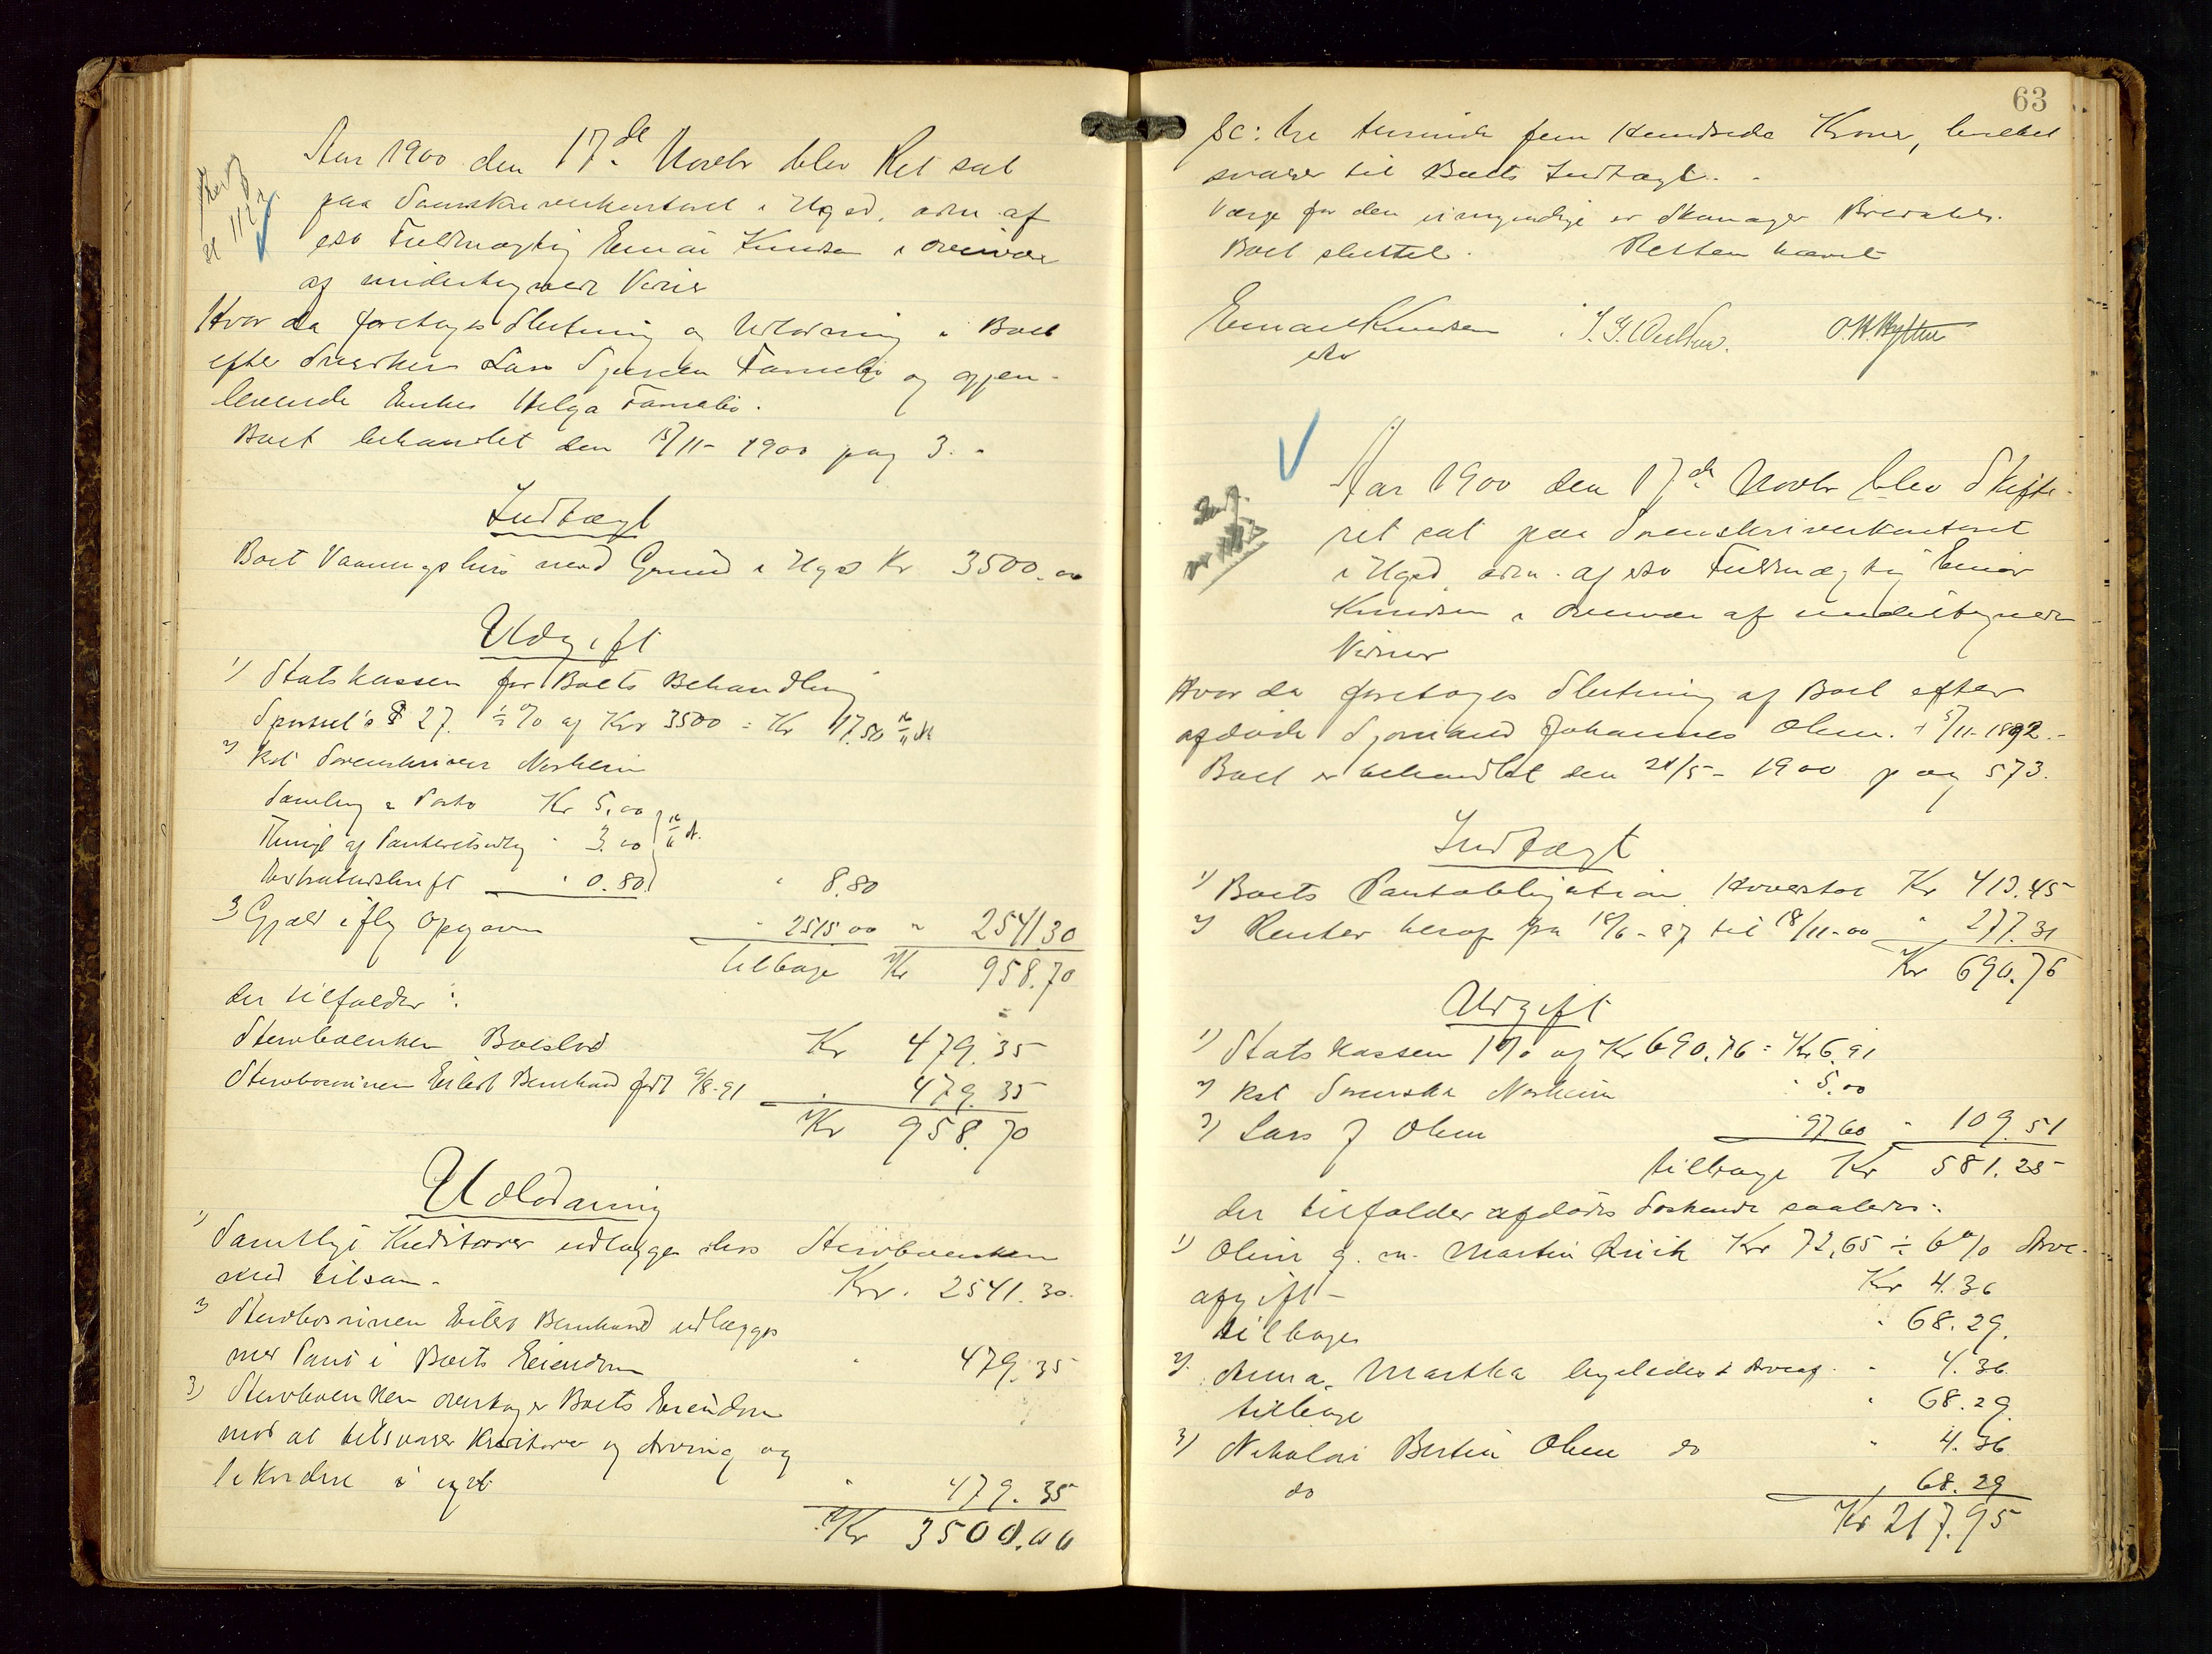 Aar 1900 den 17de Novbr blev Ret sat
paa Sorenskriverkontoret i Hgsd, adm. af
eds Fuldmægtig Einar Knudsen i Overvær
af undertegnede Vidner
Hvor da foretoges Slutning og Udlodning i Boet
efter Snedker Lars Farnebo og gjen-
levende Enke Helga Farnebo.
Boet behandlet den 15/11- 1900 pag 3.
Indtægt
Boet Vaaningshus med Grund i Hgsd Kr 3500.00
Udgift
1) Statskassen for Boets Behandling
Sportel's § 27. ½% af Kr 3500 = Kr 17.50
2) kst Sorenskriver Norheim
Samling & Porto Kr 5.00
Thingl af Panteretsudlæg " 3.00
" 0.80 " 8.80
3) Gjæld iflg Opgave " 2515.00 " 2541.30
tilbage Kr 958.70
der tilfalder:
Stervboenken Boeslod Kr 479.35
Stervbosønnen Eilert Bernhard født 9/8-91 " 479.35
Kr 958.70
Udlodning
1) Samtlige Kreditorer udlægges hos Stervboenken
med tilsam. Kr. 2541.30.
2) Stervbosønnen Eilert Bernhard udlægges
med Pant i Boets Eiendom " 479.35
3) Stervboenken overtager Boets Eiendom
mod at tilsvare Kreditorer og Arving og
bekvemme i eget " 479.35
Kr 3500.00
63
sc: tre tusinde fem Hundrede Kroner, hvilket
svarer til Boets Indtægt.
Værge for den umyndige er Skomager
Boet sluttet. Retten hævet
Einar Knudsen
eds
O. H. Hytten
Aar 1900 den 17de Novbr blev Skifte-
ret sat paa Sorenskriverkontoret
i Hgsd adm. af eds Fuldmægtig Einar
Knudsen i Overvær af undertegnede
Vidner
Hvor da foretoges Slutning af Boet efter
afdøde Sjømand Johannes Olsen. † 5/11-1892.
Boet er behandlet den 28/5- 1900 pag 573.
Indtægt
1) Boets Pantobligation Hovedstol Kr 413.45
2) Renter heraf fra 18/6-87 til 18/11-00 " 277.31
Kr 690.76
Udgift
1) Statskassen 1% af Kr 690.76 = Kr 6.91
2) kst Sorenskr Norheim " 5.00
3) Lars J Olsen " 97.60 " 109.51
tilbage Kr 581.25
der tilfalder afdødes Søskende saaledes:
1) Oline g. m. Martin Kr 72,65 ÷ 6% Arve-
afgift - Kr 4.36
tilbage " 68.29.
2) Anna Martha ligeledes ÷ Arveaf. " 4.36
tilbage " 68.29
3) Nikolai Bertin Olsen do " 4.36
do 68.29
Kr 217.95